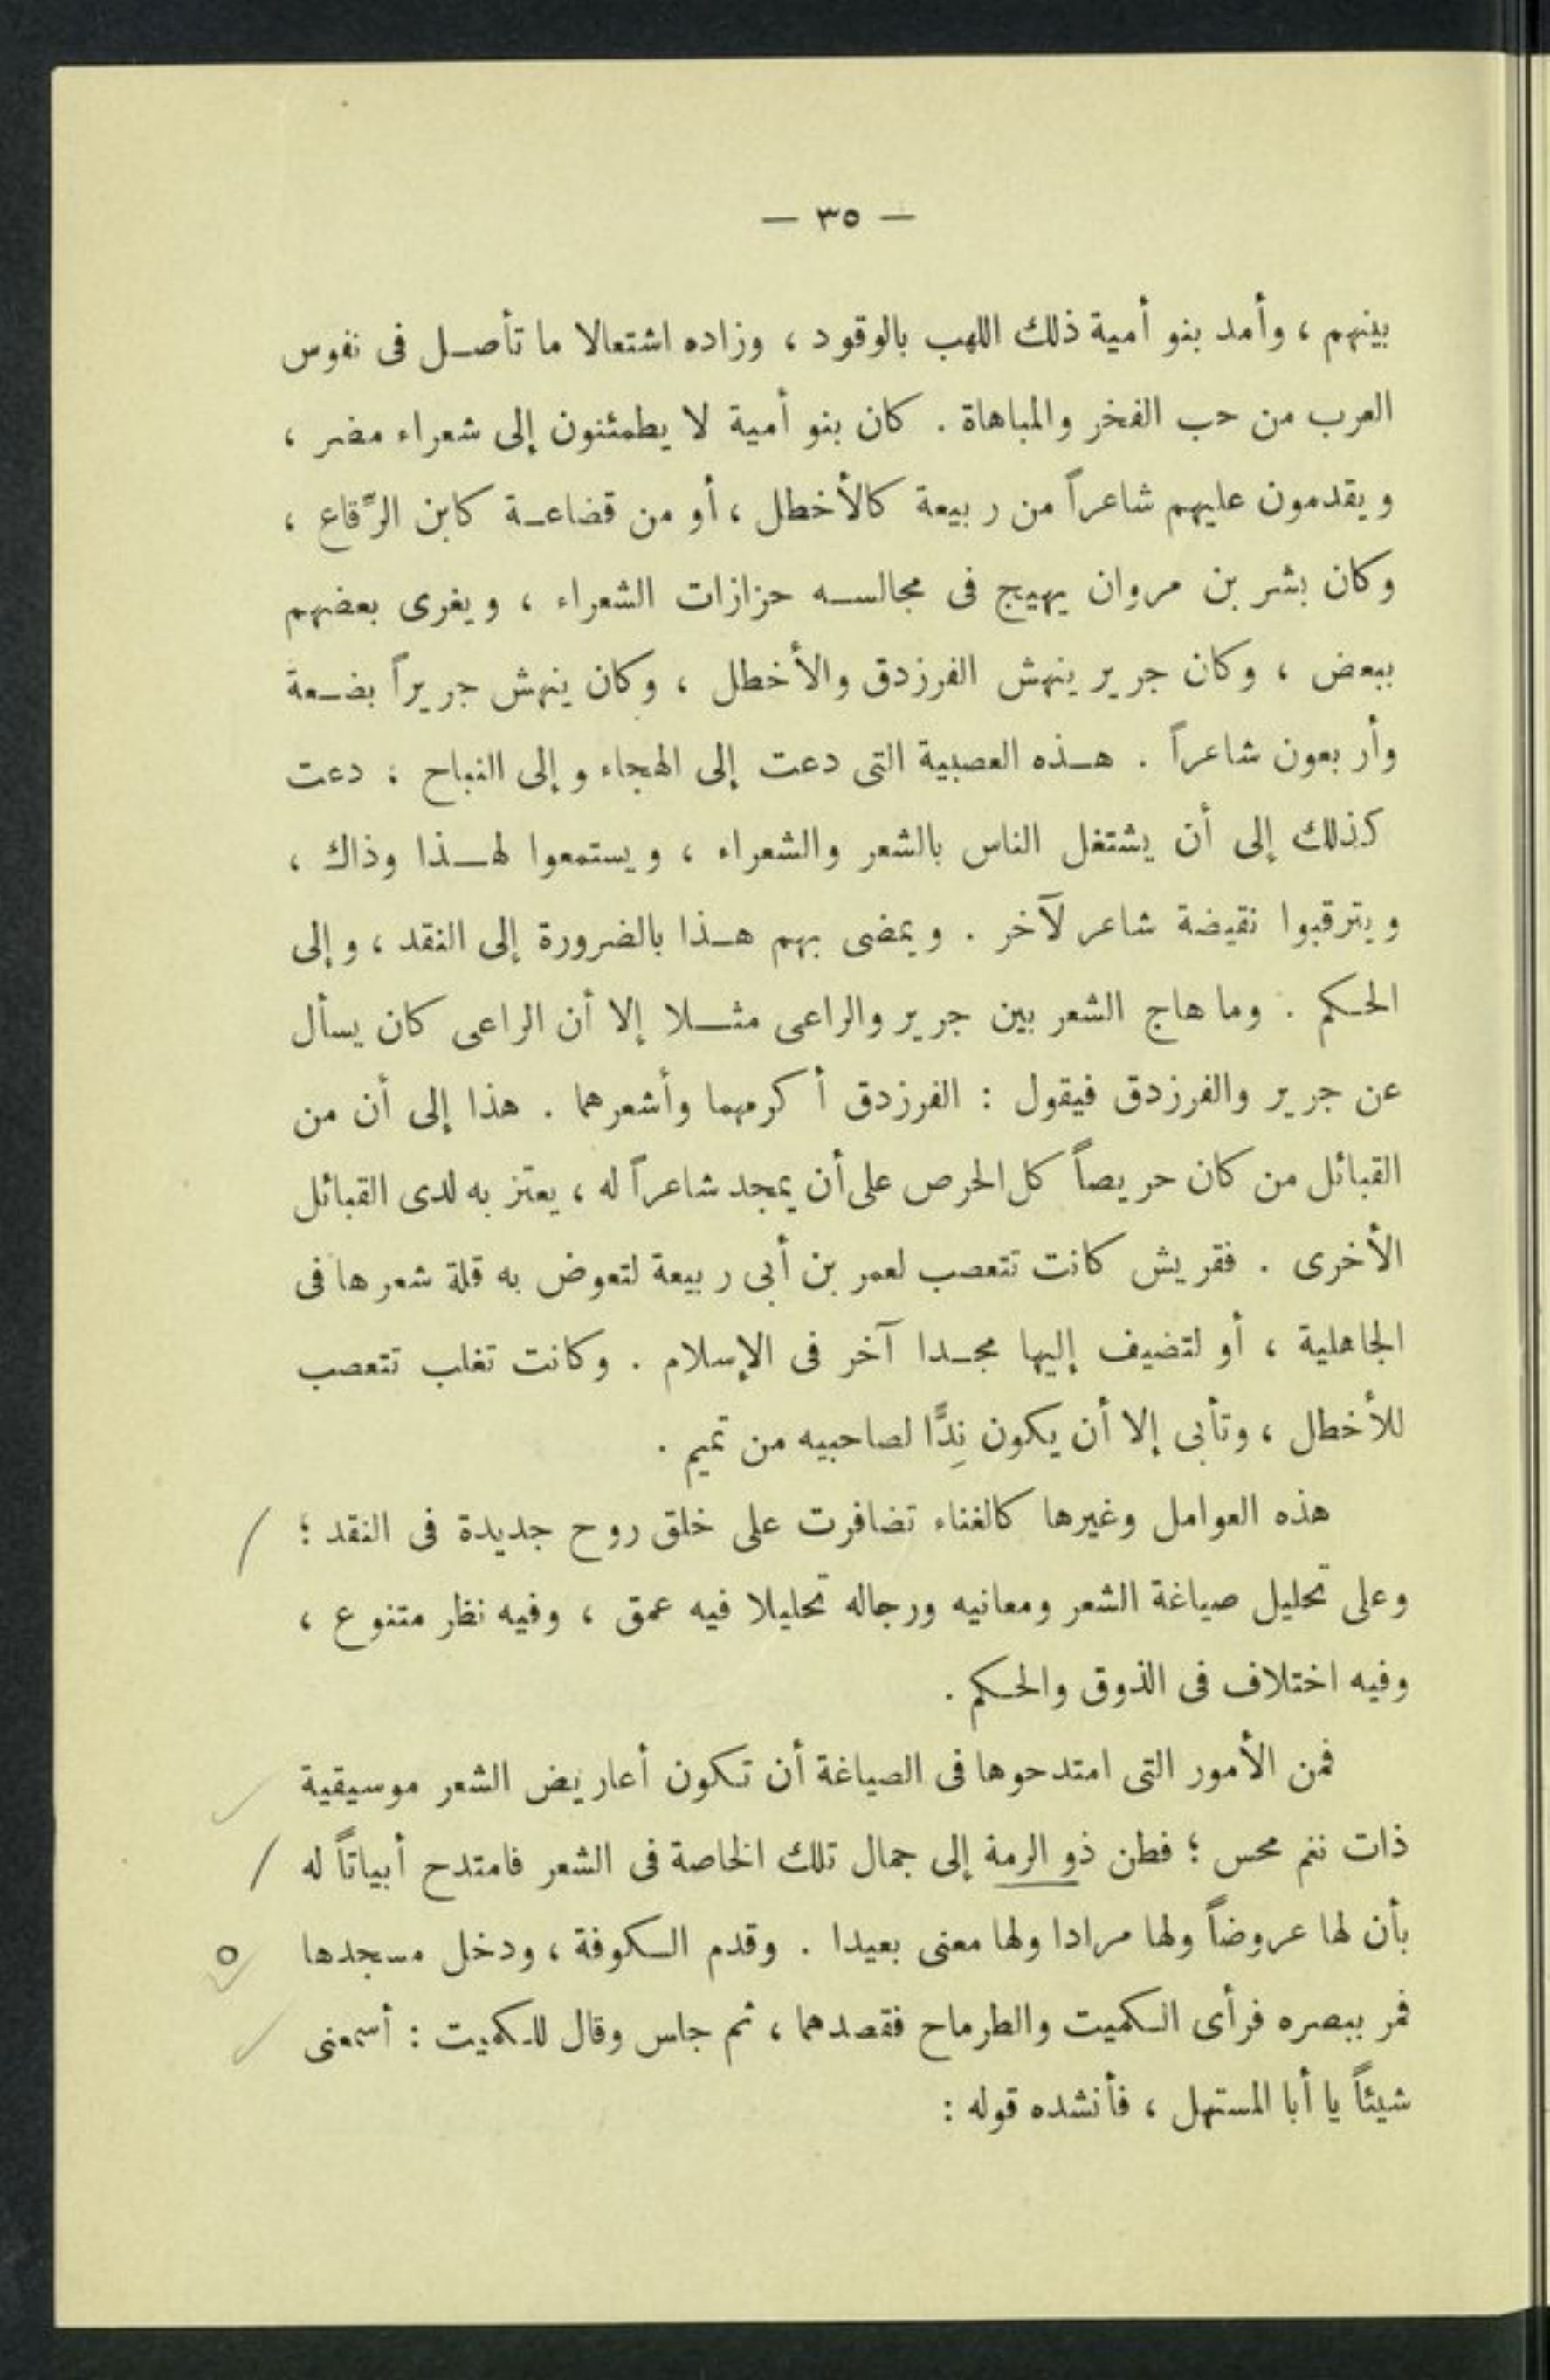 — ٣٥ —
بينهم ، وأمد بنو أمية ذلك اللهب بالوقود ، وزاده اشتعالا ما تأصل فى نفوس
العرب من حب الفخر والمباهاة . كان بنو أمية لا يطمئنون إلى شعراء مضر ،
ويقدمون عليهم شاعراً من ربيعة كالأخطل ، أو من قضاعة كابن الرِّقاع ،
وكان بشر بن مروان يهيج فى مجالسه حزازات الشعراء ، ويغرى بعضهم
ببعض ، وكان جرير ينهش الفرزدق والأخطل ، وكان ينهش جريراً بضعة
وأربعون شاعراً . هذه العصبية التى دعت إلى الهجاء وإلى النباح ؛ دعت
كذلك إلى أن يشتغل الناس بالشعر والشعراء ، ويستمعوا لهذا وذاك ،
ويترقبوا نقيضة شاعر لآخر . ويمضى بهم هذا بالضرورة إلى النقد ، وإلى
الحكم . وما هاج الشعر بين جرير والراعى مثلا إلا أن الراعى كان يسأل
عن جرير والفرزدق فيقول : الفرزدق أكرمهما وأشعرهما . هذا إلى أن من
القبائل من كان حريصاً كل الحرص على أن يمجد شاعراً له ، يعتز به لدى القبائل
الأخرى . فقريش كانت تتعصب لعمر بن أبى ربيعة لتعوض به قلة شعرها فى
الجاهلية ، أو لتضيف إليها مجدا آخر فى الإسلام . وكانت تغلب تتعصب
للأخطل ، وتأبى إلا أن يكون نِدًّا لصاحبيه من تميم .
هذه العوامل وغيرها كالغناء تضافرت على خلق روح جديدة فى النقد ؛
وعلى تحليل صياغة الشعر ومعانيه ورجاله تحليلا فيه عمق ، وفيه نظر متنوع ،
وفيه اختلاف فى الذوق والحكم .
فمن الأمور التى امتدحوها فى الصياغة أن تكون أعاريض الشعر موسيقية
ذات نغم محس ؛ فطن ذو الرمة إلى جمال تلك الخاصة فى الشعر فامتدح أبياتاً له
بأن لها عروضاً ولها مرادا ولها معنى بعيدا . وقدم الكوفة ، ودخل مسجدها
فمر ببصره فرأى الكميت والطرماح فقصدهما ، ثم جلس وقال للكميت : أسمعنى
شيئاً يا أبا المستهل ، فأنشده قوله :